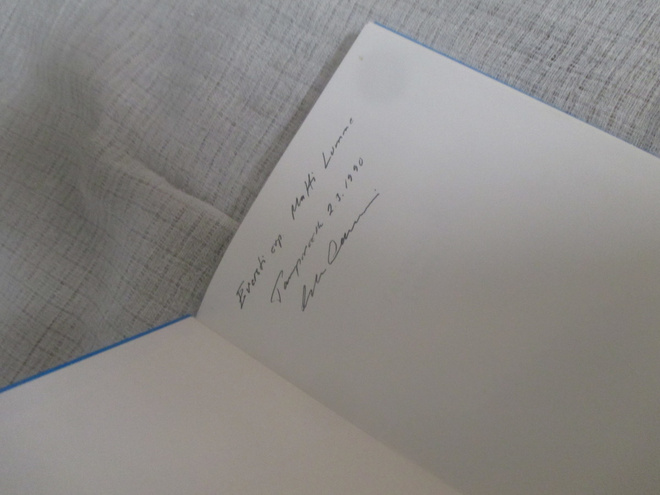 Eversti evp. Matti Lumme
Tampereella 2.3.1990